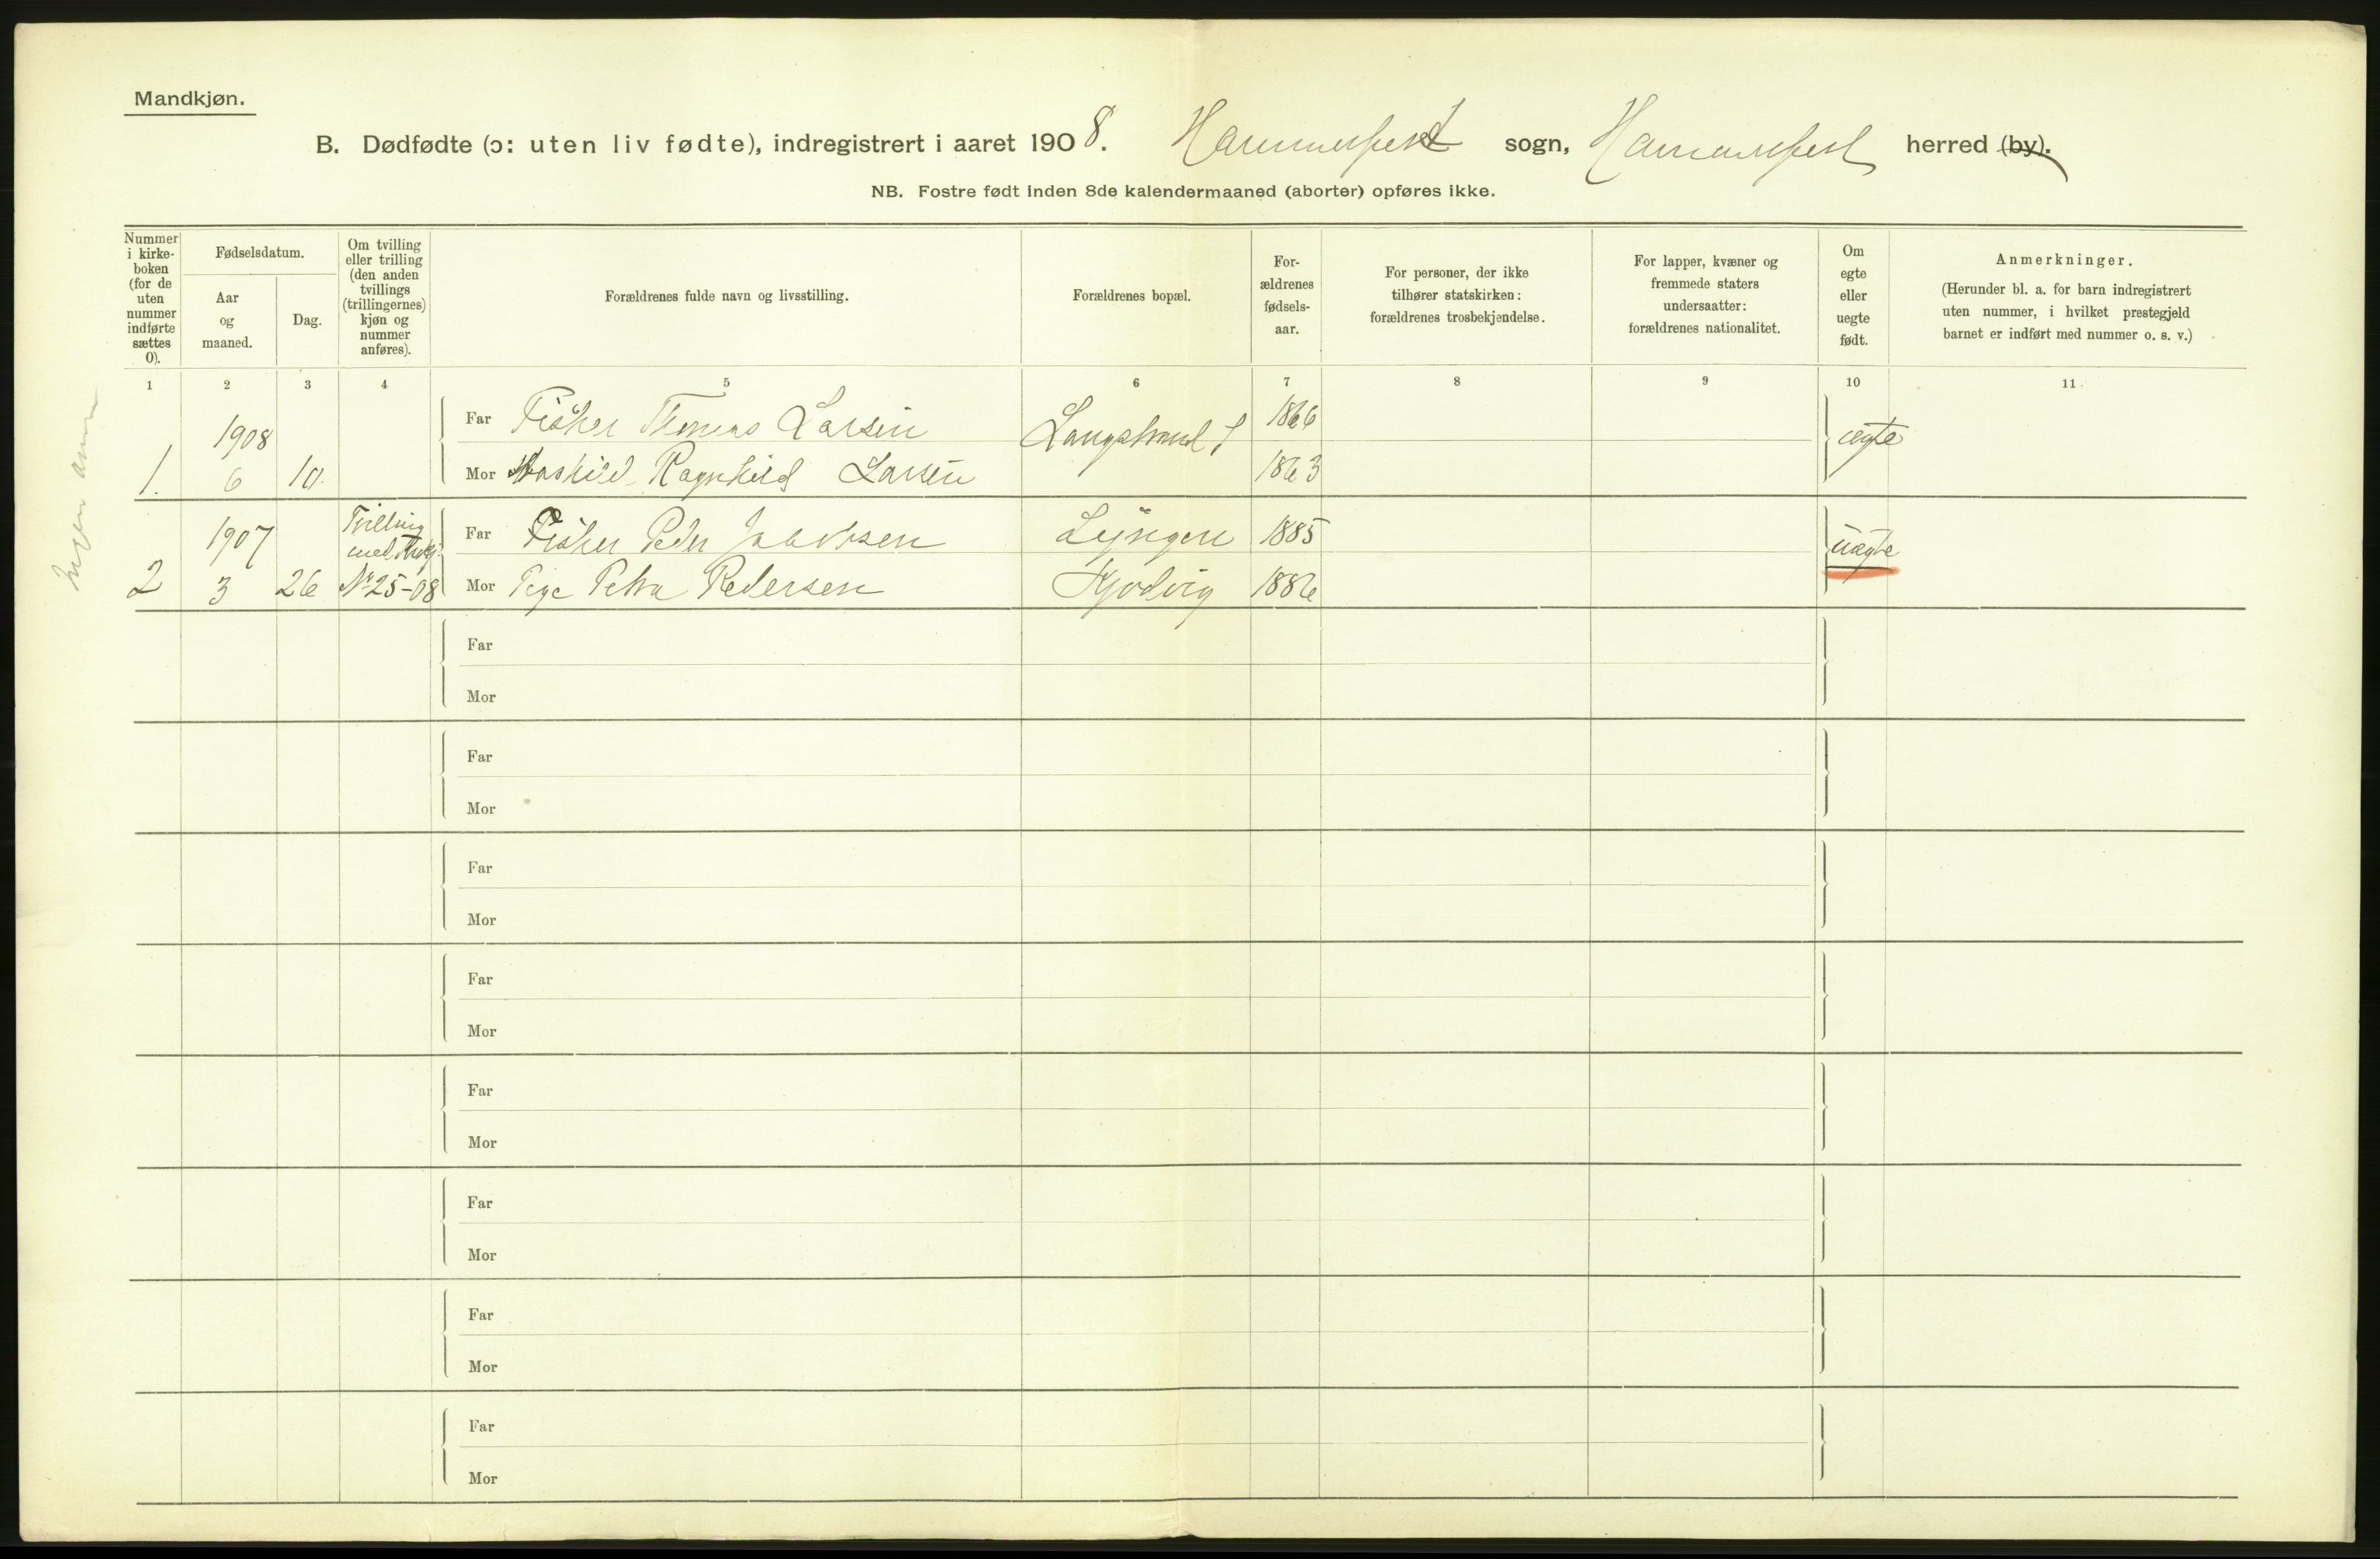 Mandkjøn.
B. Dødfødte (ɔ: uten liv fødte), indregistrert i aaret 1908. Hammerfest sogn, Hammerfest herred (by).
NB. Fostre født inden 8de kalendermaaned (aborter) opføres ikke.
Nummer
i kirke-
boken
(for de
uten
nummer
indførte
sættes
0).
Fødselsdatum.
Aar
og
maaned.
Dag.
Om tvilling
eller trilling
(den anden
tvillings
(trillingernes)
kjøn og
nummer
anføres).
Forældrenes fulde navn og livsstilling.
Forældrenes bopæl.
For-
ældrenes
fødsels-
aar.
For personer, der ikke
tilhører statskirken:
forældrenes trosbekjendelse.
For lapper, kvæner og
fremmede staters
undersaatter:
forældrenes nationalitet.
Om
egte
eller
uegte
født.
Anmerkninger.
(Herunder bl. a. for barn indregistrert
uten nummer, i hvilket prestegjeld
barnet er indført med nummer o. s. v.)
1 2 3 4 5 6 7 8 9 10 11
1908 Far Fisker Thomas Larsen Langstrand 1866 ægte
1. 6 10. Mor Ragnhild Larsen 1863
1907 Tvilling med Far Fisker Peder Jakobsen Lyngen 1885 uægte
2 3 26 Nr 25-08 Mor Pige Petra Pedersen 1886
Far
Mor
Far
Mor
Far
Mor
Far
Mor
Far
Mor
Far
Mor
Far
Mor
Far
Mor